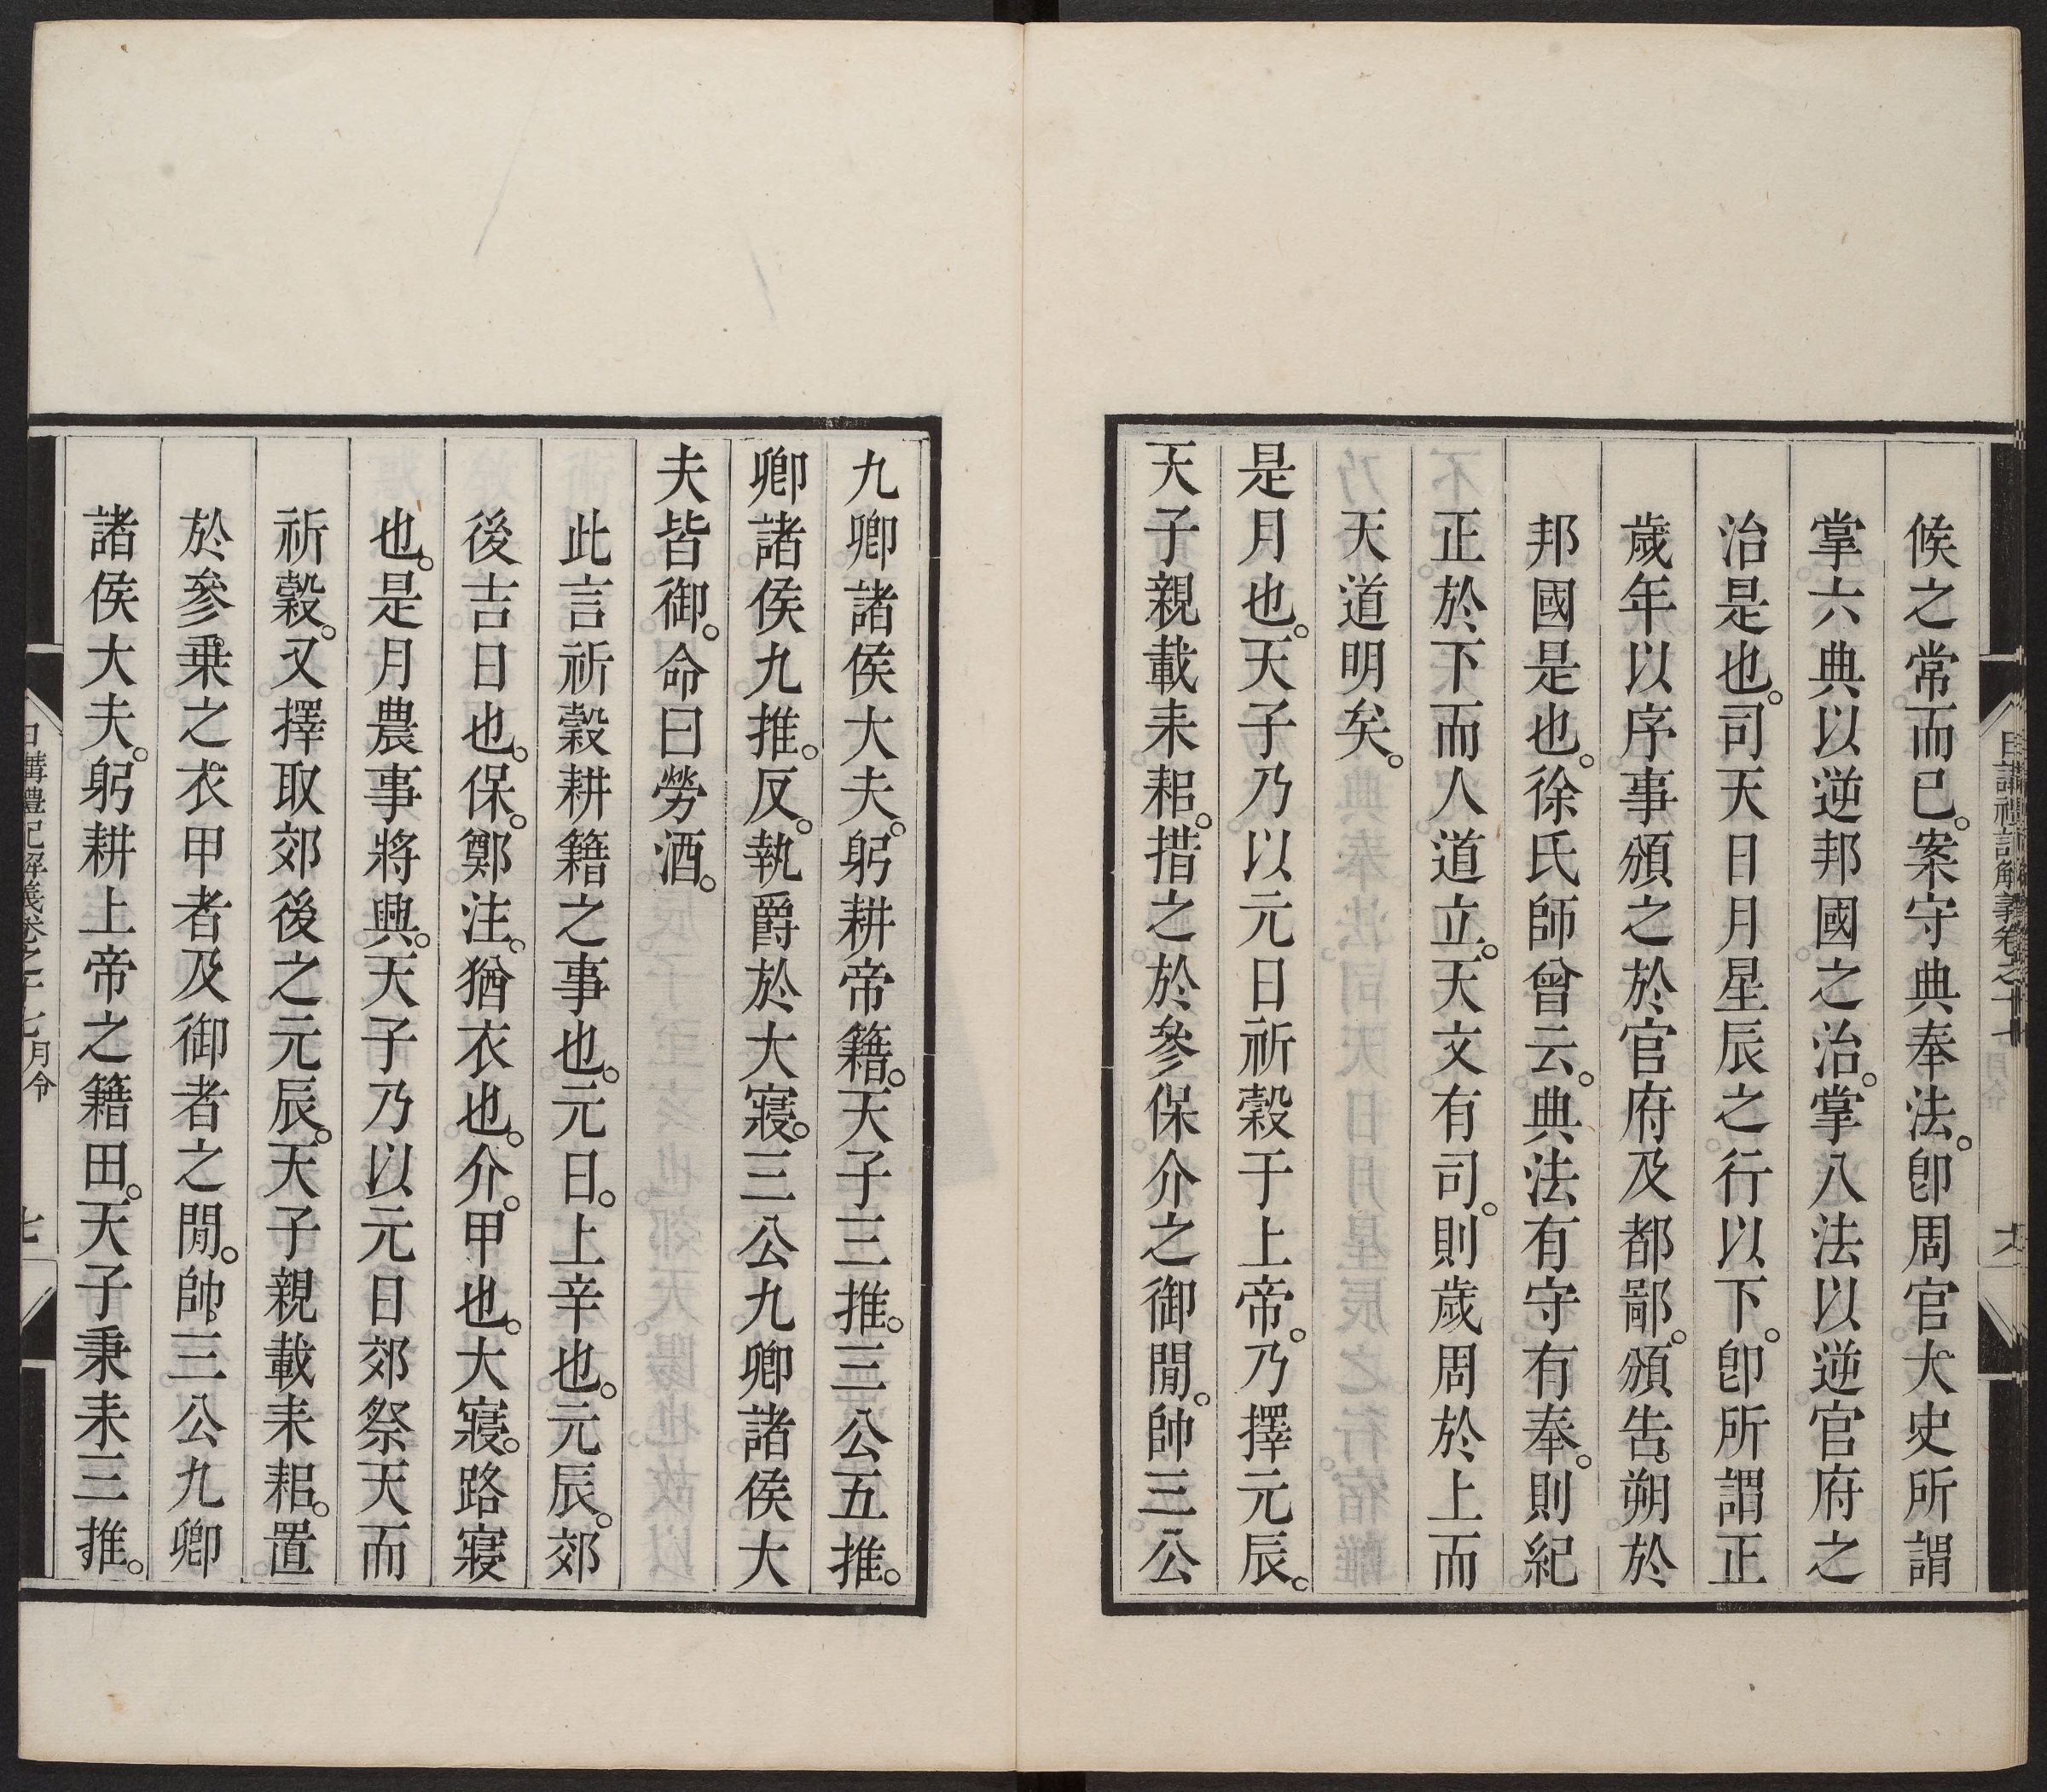 候之常而已。案守典奉法。卽周官大史所謂
掌六典以逆邦國之治。掌八法以逆官府之
治是也。司天日月星辰之行以下。卽所謂正
歲年以序事頒之於官府及都鄙。頒告朔於
邦國是也。徐氏師曾云。典法有守有奉。則紀
正於下而人道立。天文有司。則歲周於上而
天道明矣。
是月也。天子乃以元日祈穀于上帝。乃擇元辰。
天子親載耒耜。措之於參保介之御閒。帥三公
九卿諸侯大夫。躬耕帝籍。天子三推。三公五推。
卿諸侯九推。反。執爵於大寢。三公九卿諸侯大
夫皆御。命曰勞酒。
此言祈穀耕籍之事也。元日。上辛也。元辰。郊
後吉日也。保。鄭注。猶衣也。介。甲也。大寢。路寢
也。是月農事將興。天子乃以元日郊祭天而
祈穀。又擇取郊後之元辰。天子親載耒耜。置
於參乗之衣甲者及御者之閒。帥三公九卿
諸侯大夫。躬耕上帝之籍田。天子秉耒三推。
日講禮記解義卷之十七 月令 七